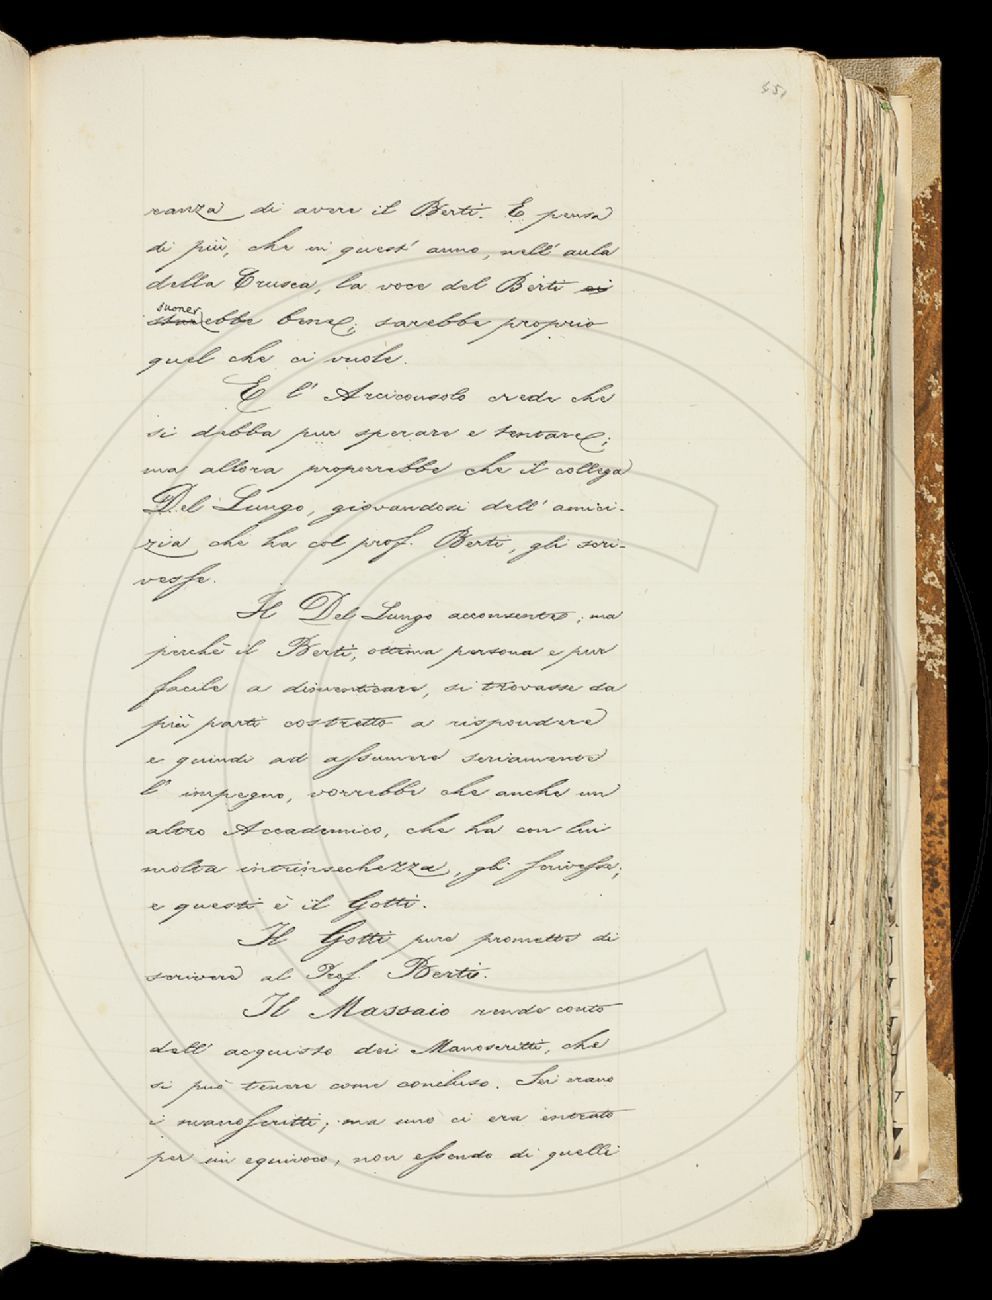 451
ranza di avere il Berti. E pensa
di più, che in quest' anno, nell' aula
della Crusca, la voce del Berti ci
suoner
starebbe bene; sarebbe proprio
quel che ci vuole.
E l' Arciconsolo crede che
si debba pur sperare e tentare;
ma allora proporrebbe che il collega
Del Lungo, giovandosi dell' amici-
zia che ha col prof. Berti, gli scri-
vesse.
Il Del Lungo acconsente; ma
perchè il Berti, ottima persona e pur
facile a dimenticare, si trovasse da
più parti costretto a rispondere
e quindi ad assumere seriamente
l' impegno, vorrebbe che anche un
altro Accademico, che ha con lui
molta intrinsechezza, gli scrivesse;
e questi è il Gotti.
Il Gotti pure promette di
scrivere al Prof. Berti.
Il Massaio rende conto
dell' acquisto dei Manoscritti, che
si può tenere come concluso. Sei erano
i manoscritti; ma uno ci era entrato
per un equivoco, non essendo di quelli